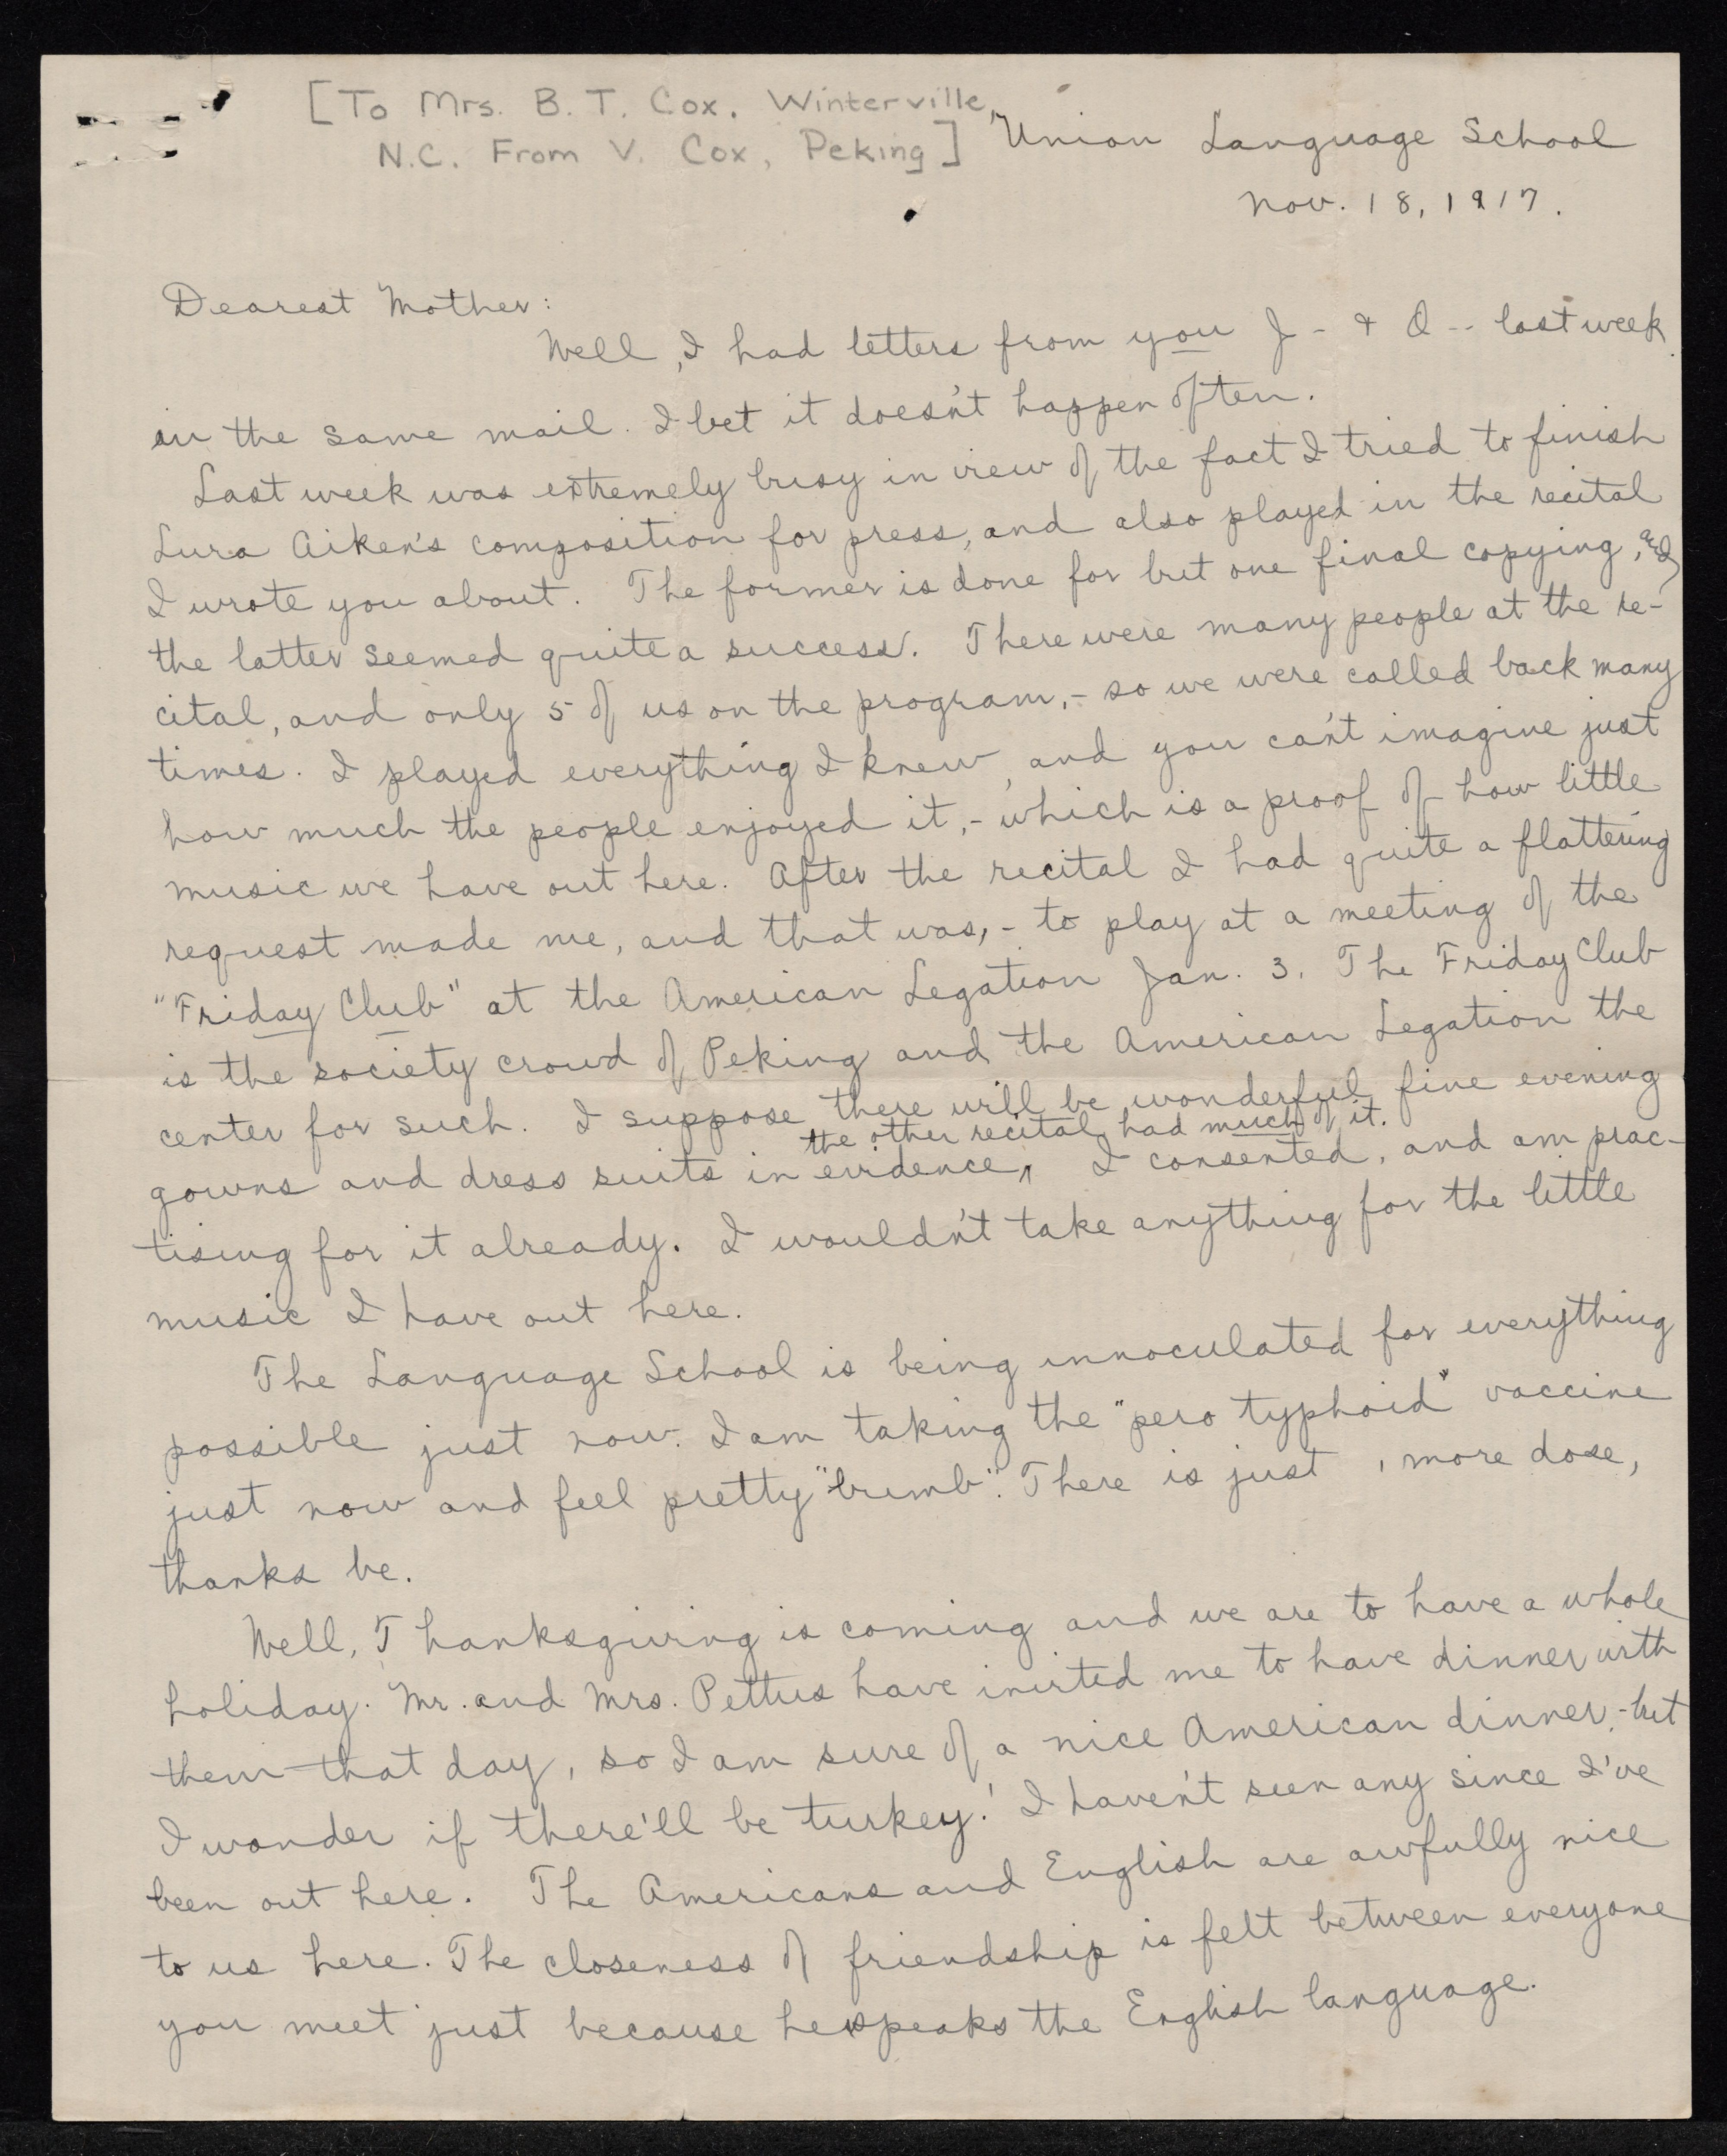 [To Mrs. B. T. Cox. Winterville,
N.C. From V. Cox, Peking]
Union Language School
Nov. 18, 1917.
Dearest Mother:
Well, I had letters from you J - & O -- last week
in the same mail. I bet it doesn't happen often.
Last week was extremely busy in view of the fact I tried to finish
Lura Aiken's composition for press, and also played in the recital
I wrote you about. The former is done for but one final copying, and
the latter seemed quite a success. There were many people at the re-
cital, and only 5 of us on the program, - so we were called back many
times. I played everything I knew, and you can't imagine just
how much the people enjoyed it, - which is a proof of how little
music we have out here. After the recital I had quite a flattering
request made me, and that was, - to play at a meeting of the
"Friday Club" at the American Legation Jan. 3. The Friday Club
is the society crowd of Peking and the American Legation the
center for such. I suppose there will be wonderful fine evening
the other recital had much of it.
gowns and dress suits in evidence, I consented, and am prac-
tising for it already. I wouldn't take anything for the little
music I have out here.
The Language School is being innoculated for everything
possible just now. I am taking the "pero typhoid" vaccine
just now and feel pretty "bumb". There is just 1 more dose,
thanks be.
Well, Thanksgiving is coming and we are to have a whole
holiday. Mr. and Mrs. Pettus have invited me to have dinner with
them that day, so I am sure of a nice American dinner, - but
I wonder if there'll be turkey! I haven't seen any since I've
been out here. The Americans and English are awfully nice
to us here. The closeness of friendship is felt between everyone
you meet just because he speaks the English language.